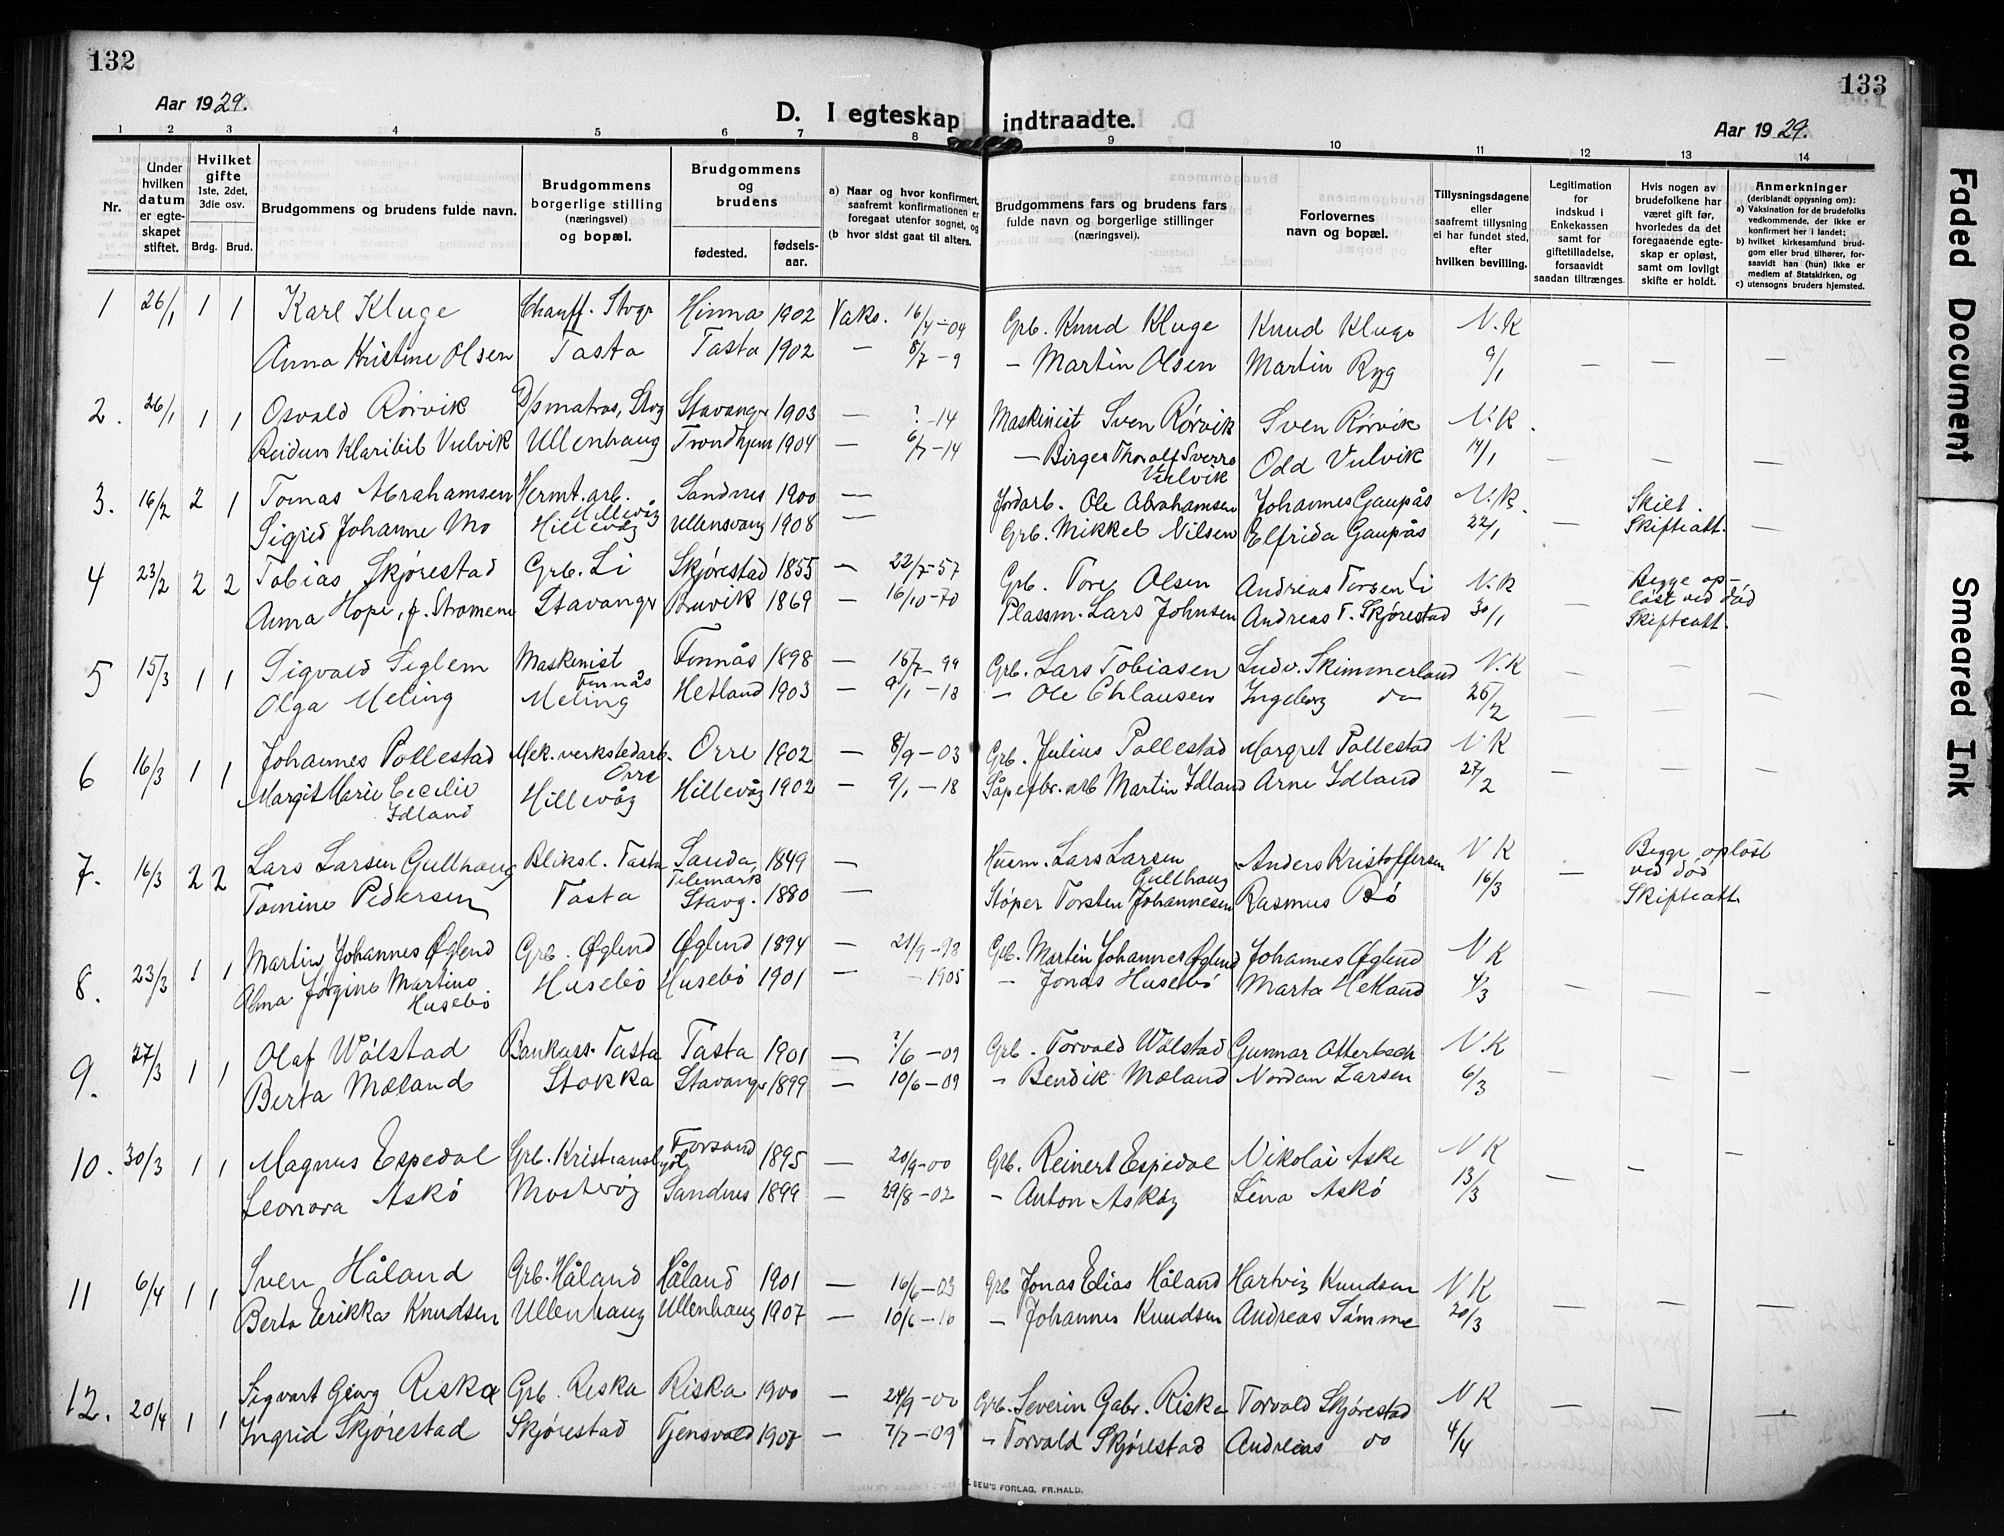 132
133
Aar 1929.
D. I egteskap indtraadte.
Aar 1929.
1 2 3 4 5 6 7 8 9 10 11 12 13 14
Nr.
Under hvilken datum er egteskapet stiftet.
Hvilket gifte 1ste, 2det, 3die osv.
Brdg. Brud.
Brudgommens og brudens fulde navn.
Brudgommens borgerlige stilling (næringsvei) og bopæl.
Brudgommens og brudens
fødested. fødsels-aar.
a) Naar og hvor konfirmert, saafremt konfirmationen er foregaat utenfor sognet, og
(b hvor sidst gaat til alters.
Brudgommens fars og brudens fars fulde navn og borgerlige stillinger (næringsvei).
Forlovernes navn og bopæl.
Tillysningsdagene eller saafremt tillysning ei har fundet sted, efter hvilken bevilling.
Legitimation for indskud i Enkekassen samt for giftetilladelse, forsaavidt saadan tiltrænges.
Hvis nogen av brudefolkene har været gift før, hvorledes da det foregaaende egteskap er opløst, samt om lovligt skifte er holdt.
Anmerkninger (deriblandt opiysning om):
a) Vaksination for de brudefolks vedkommende, der ikke er konfirmert her i landet;
b) hvilket kirkesamfund brudgom eller brud tilhører, forsaavidt han (hun) ikke er medlem af Statskirken, og
c) utensogns bruders hjemsted.
1 26/1 1 1 Karl Kluge Chauff. Stvgr Hinna 1902 Vaks. 16/4-04 Grb. Knud Kluge Knud Kluge N.K
Anna Kristine Olsen Tasta Tasta 1902 — 8/7-9 — Martin Olsen Martin Ryg 9/1 — — —
2. 26/1 1 1 Osvald Rørvik D/s matros, Stvg Stavangr 1903 — ?-14 Maskinist Sven Rørvik Sven Rørvik N.K.
Reidun Klaribil Vulvik Ullenhaug Trondhjem 1904 — 6/7-14 — Birger Thoralf Sverre Vulvik Odd Vulvik 14/1
3. 16/2 2 1 Tomas Abrahamsen Hermt. arb. Hillevåg Sandnes 1900 — Jordarb. Ole Abrahamsen Johannes Gaupås N.K. Skilt.
Sigrid Johanne Mo Hillevåg Ullensvang 1908 — Grb. Mikkel Nilsen Elfrida Gaupås 22/1 — Skifteatt. —
4 23/2 2 2 Tobias Skjørestad Grb. Li Skjørestad 1855 — 22/7-57 Grb. Tore Olsen Andreas Torsen Li N.K Begge op-
Anna Hope, f. Stromene Stavangr Bruvik 1869 — 16/10-70 Plassm. Lars Johnsen Andreas T. Skjørestad 30/1 — løst ved död
Skifteatt.
5 15/3 1 1 Sigvald Siglem Maskinist Finnås Finnås 1898 — 15/7-99 Grb. Lars Tobiasen Ludv. Skimmerland N.K
Olga Meling Meling Hetland 1903 — 9/1-18 — Ole Chlausen Ingeborg do 25/2 — — —
6 16/3 1 1 Johannes Pollestad Mek. verkstedarb. Orre Orre 1902 — 8/9-03 Grb. Julius Pollestad Margret Pollestad N K
Margit Marie Cecilie Idland Hillevåg Hillevåg 1902 — 9/1-18 Såpefbr. arb Martin Idland Arne Idland 27/2 — — —
7. 16/3 2 2 Lars Larsen Gullhaug Bliksl. Tasta Sauda Telemark 1849 — Husm. Lars Larsen Gullhaug Anders Kristoffersen N K Begge opløst
Tomine Pedersen Tasta Stavg. 1880 — Støper Torsten Johannesen Rasmus Bö 16/3 — ved död
Skifteatt
8. 23/3 1 1 Martin Johannes Öglend Grb. Öglend Öglend 1894 — 21/9-98 Grb. Martin Johannes Öglend Johannes Öglend N K
Alma Jörgine Martine Husebö Husebö Husebö 1901 — -1905 — Jonas Husebö Marta Hetland 4/3 — — —
9. 27/3 1 1 Olaf Wölstad Bankass. Tasta Tasta 1901 — ?/6-09 Grb. Torvald Wölstad Gunnar Otterbech N.K
Berta Mæland Stokka Stavangr 1899 — 10/6-09 — Bendik Mæland Nordan Larsen 6/3 — — —
10. 30/3 1 1 Magnus Espedal Grb. Kristianslyst Forsand 1895 — 20/9-00 Grb. Reinert Espedal Nikolai Aske N K
Leonora Askö Mosterøy Sandnes 1899 — 29/8-02 — Anton Askøy Lina Askö 13/3 — — —
11 6/4 1 1 Sven Håland Grb. Håland Håland 1901 — 16/6-03 Grb Jonas Elias Håland Hartvig Knudsen N K
Berta Erikka Knudsen Ullenhaug Ullenhaug 1907 — 10/6-10 — Johannes Knudsen Andreas Sömme 20/3 — — —
12. 20/4 1 1 Sigvart Georg Riska Grb. Riska Riska 1900 — 24/9-00 Grb. Severin Gabr. Riska Torvald Skjørestad N K
Ingrid Skjørestad Skjørestad Tjensvold 1907 — 7/7-09 — Torvald Skjørestad Andreas do 4/4 — — —
SEM'S FORLAG, FR.HALD.
Faded Document
Smeared Ink